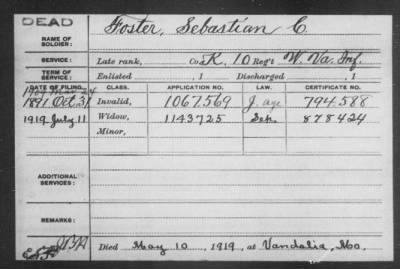 DEAD
NAME OF SOLDIER: Foster, Sebastian C.
SERVICE: Late rank, Co. K, 10 Reg't W. Va. Inf.
TERM OF SERVICE: Enlisted , 1 Discharged , 1
DATE OF FILING. CLASS. APPLICATION NO. LAW. CERTIFICATE NO.
1907 Mar 24
1891 Oct. 31 Invalid, 1067.569 J. age 794.588
1919 July 11 Widow, 1143725 Sep. 878424
Minor,
ADDITIONAL SERVICES:
REMARKS:
Died May 10, 1919, at Vandalia, Mo.